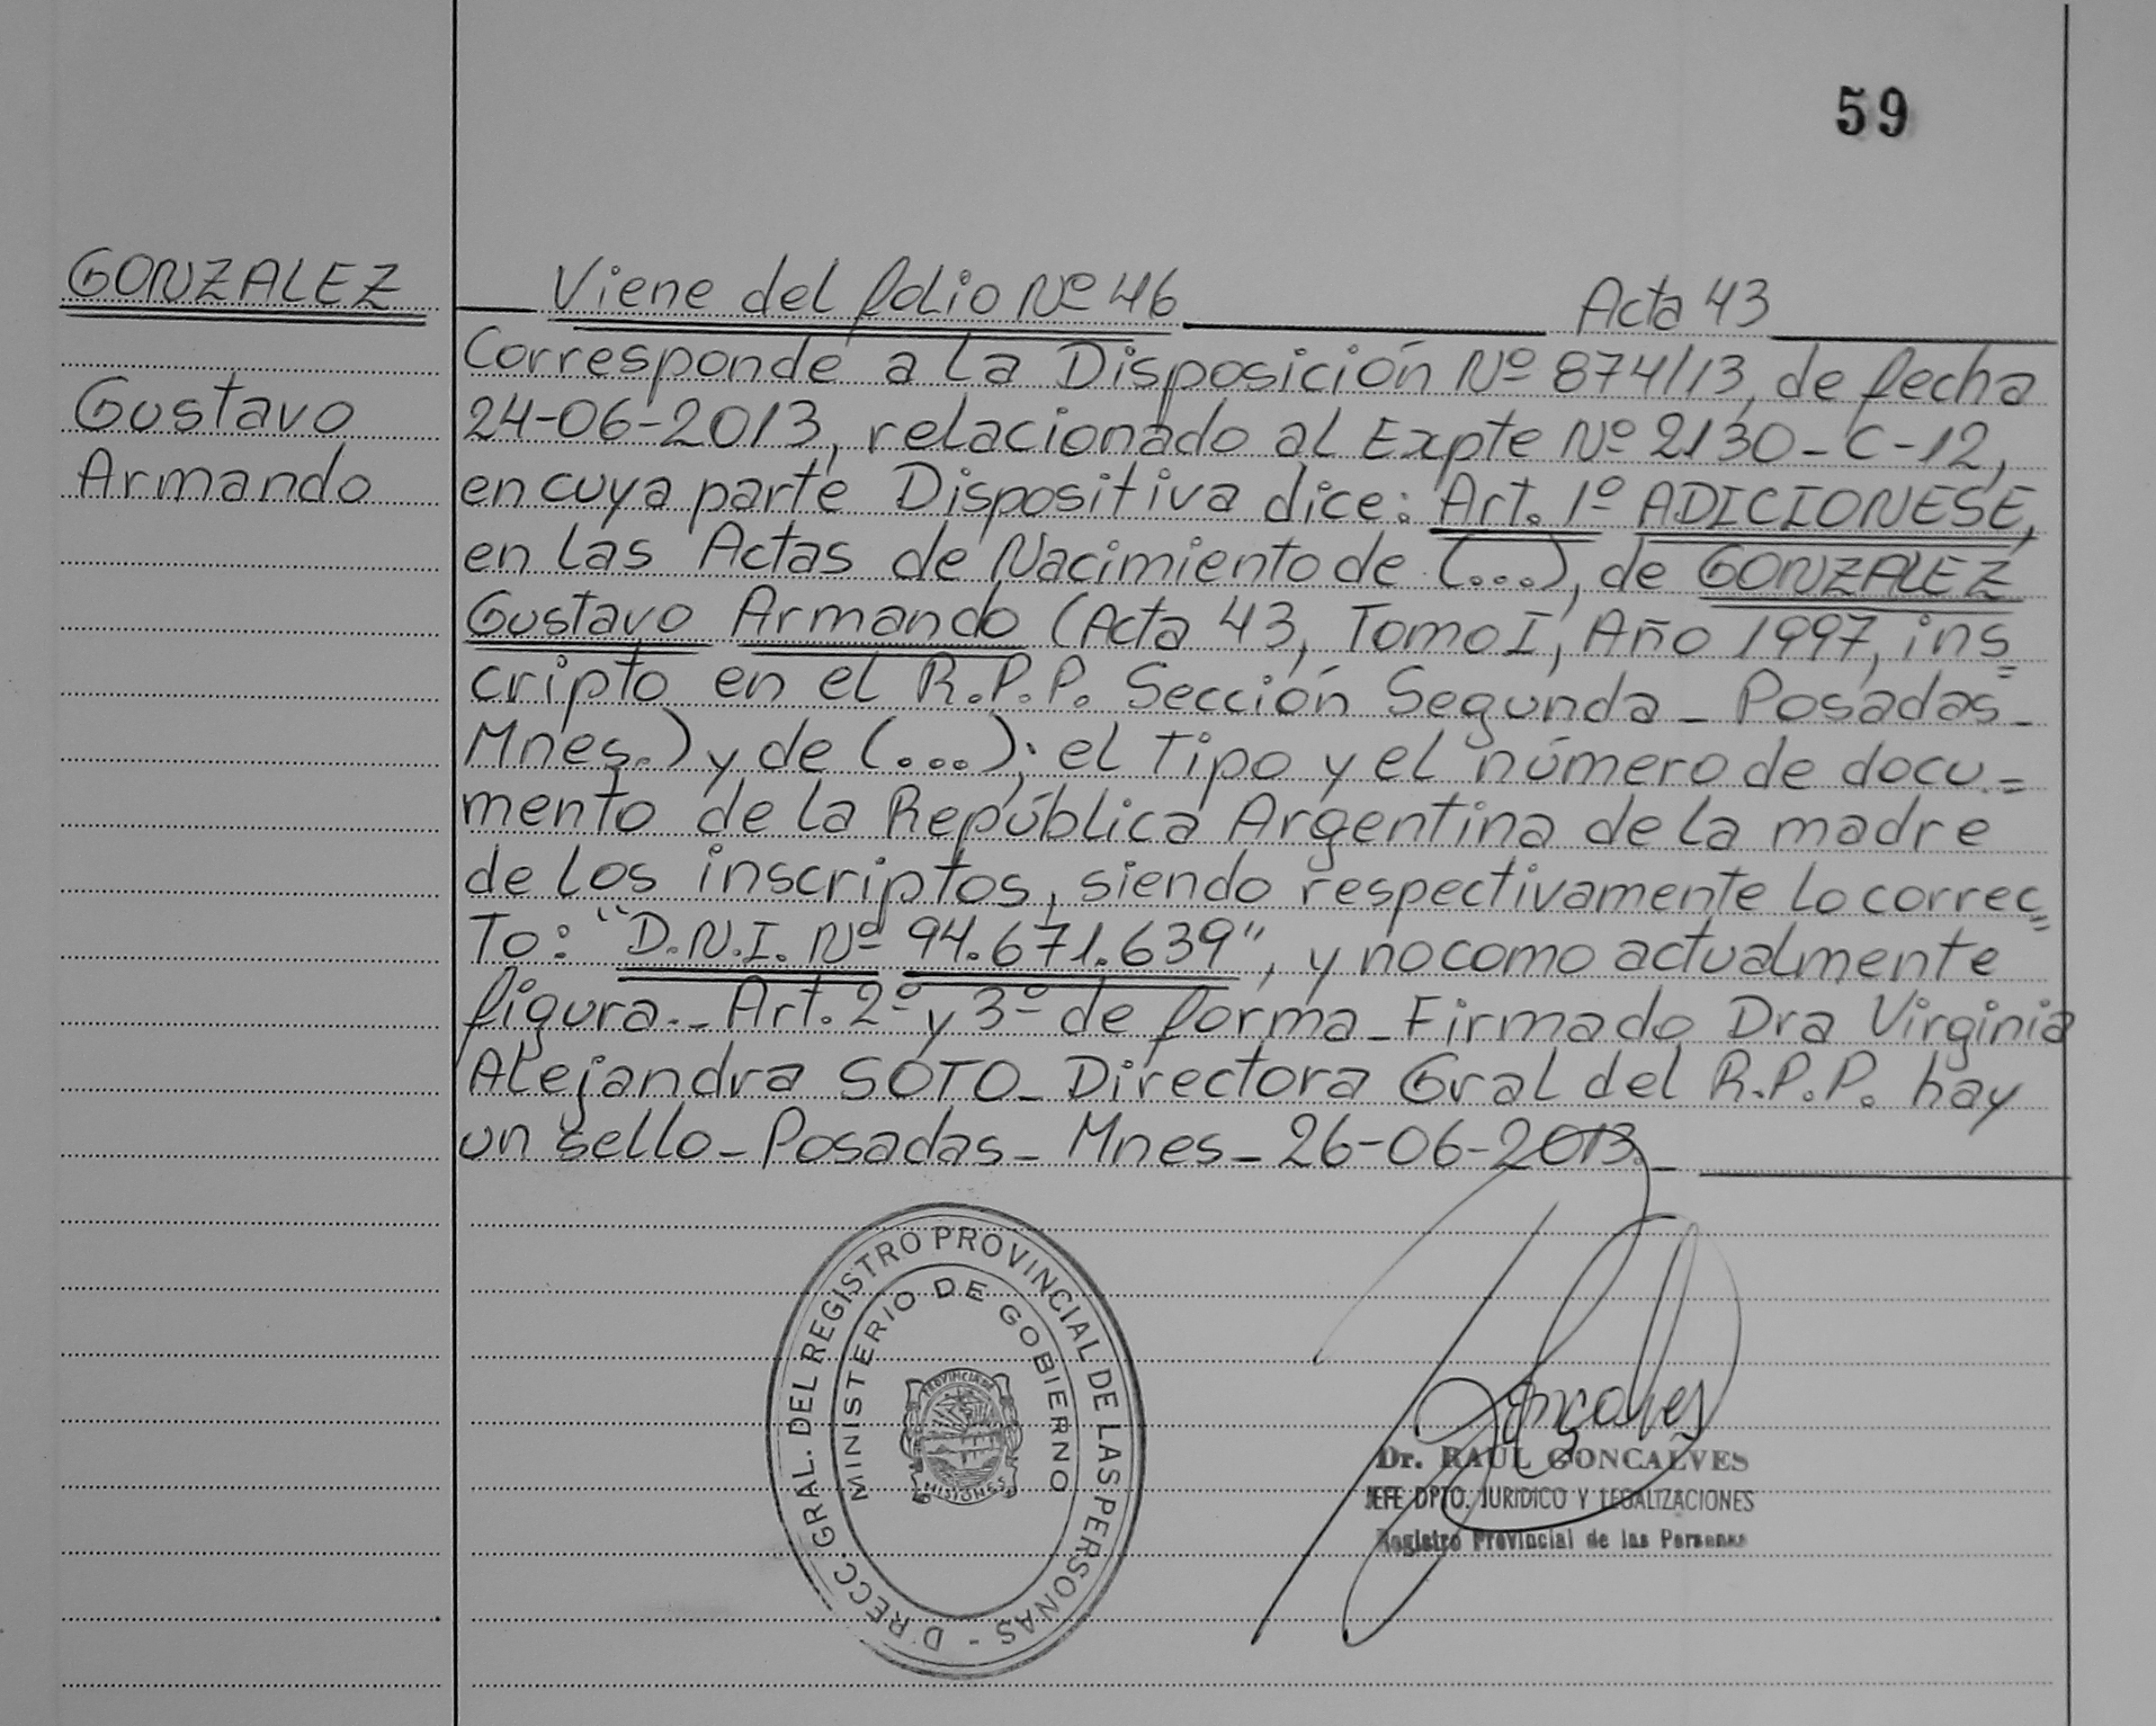 59
GONZALEZ
Gustavo
Armando
Viene del folio Nº 46 Acta 43
Corresponde a la Disposición Nº 874/13, de fecha
24-06-2013, relacionado al Expte Nº 2130-C-12,
en cuya parte Dispositiva dice: Art. 1º ADICIONESE,
en las Actas de Nacimiento de (...), de GONZALEZ
Gustavo Armando (Acta 43, Tomo I, Año 1997, ins=
cripto en el R.P.P. Sección Segunda - Posadas -
Mnes.) y de (...); el Tipo y el número de docu.=
mento de la República Argentina de la madre
de los inscriptos, siendo respectivamente lo correc=
To: "D.N.I. Nº 94.671.639", y no como actualmente
figura.- Art. 2º y 3º de forma - Firmado Dra Virginia
Alejandra SOTO - Directora Gral del R.P.P. hay
un sello - Posadas - Mnes - 26-06-2013.-
DIRECC. GRAL. DEL REGISTRO PROVINCIAL DE LAS PERSONAS -
MINISTERIO DE GOBIERNO
PROVINCIA DE
MISIONES
Gonçalves
Dr. RAUL GONCALVES
JEFE DPTO. JURIDICO Y LEGALIZACIONES
Registro Provincial de las Personas